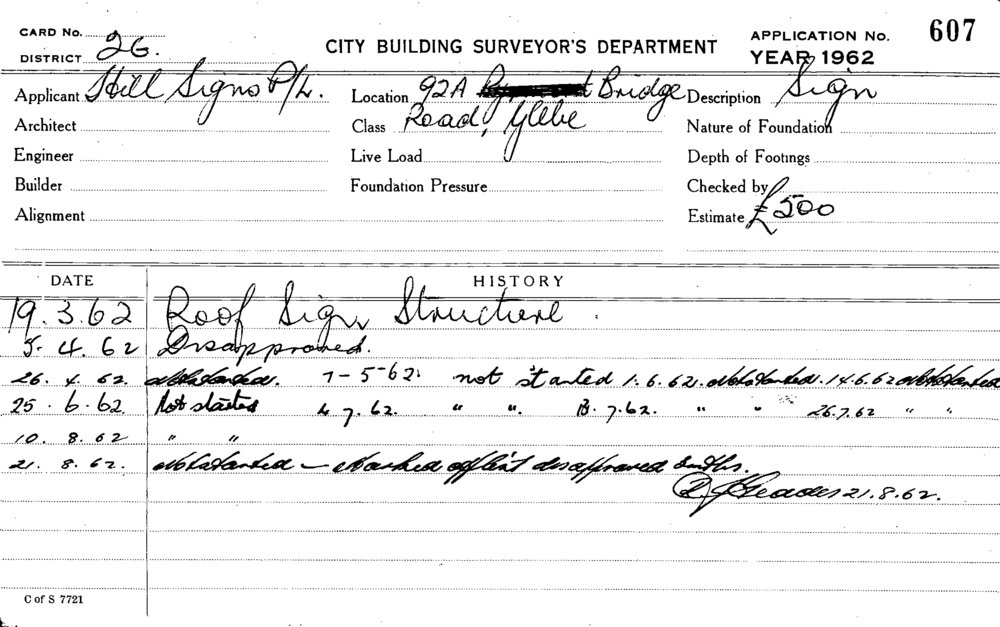 CARD No. CITY BUILDING SURVEYOR'S DEPARTMENT APPLICATION No. 607
DISTRICT 26. YEAR 1962
Applicant Hill Signs P/L. Location 92A Bridge Description Sign
Architect Class Road, Glebe Nature of Foundation
Engineer Live Load Depth of Footings
Builder Foundation Pressure Checked by
Alignment Estimate £500
DATE HISTORY
19.3.62 Roof Sign Structure.
5.4.62 Disapproved.
26.4.62. Not started. 7-5-62. not started 1.6.62. Not started. 14.6.62 Not started
25.6.62. Not started 4.7.62. " ". 13.7.62. " " 26.7.62 " "
10.8.62 " "
21.8.62. Not started — Marked off list disapproved 3 mths.
21.8.62.
C of S 7721